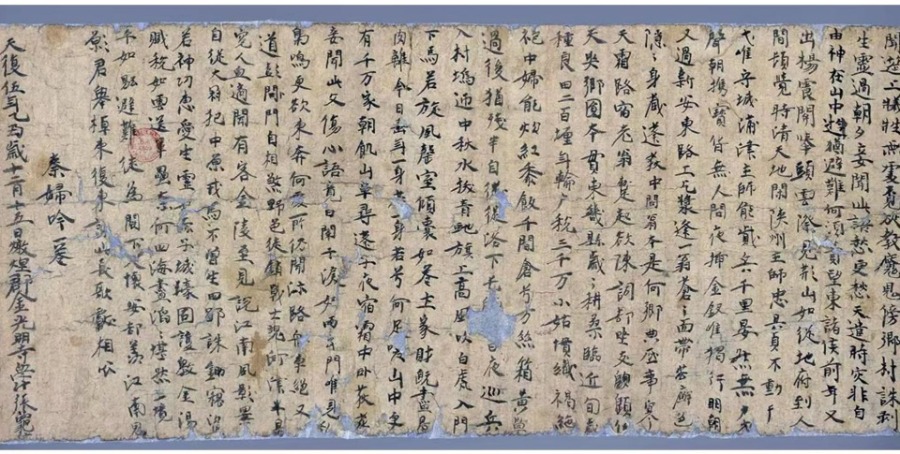 上犧牲所處 教魘鬼傍鄉村誅剝
生靈過朝夕妾聞此語愁更愁天遣時災非自
由神在山中猶避難何須責望東諸侯前年又
出楊震開舉頭雲際見荊山如從地府到人
間頓覺時清天地閑陝州主帥忠且貞不動干
戈唯守城蒲津主帥能戢兵千里晏然無戈
聲朝攜寶貨無人問夜插金釵唯獨行明朝
又過新安東路上乞漿逢一翁蒼蒼面帶苔蘚色
隱隱身藏蓬荻中問翁本是何鄉曲底事寒
天霜露宿老翁暫起欲陳詞却坐支頤仰
天哭鄉園本貫東畿縣歲歲耕桑臨近甸歲
種良田二百壥年輸戶稅三千萬小姑慣織褐絁
袍中婦能炊紅黍飯千間倉兮万絲箱黃巢
過後猶殘半自從洛下屯 日夜巡兵
入村塢匣中秋水拔青虵旗上高風吹白虎入門
下馬若旋風罄室傾囊如卷土家財既盡骨
肉離今日垂年一身苦一身苦兮何足嗟山中更
有千万家朝飢山草尋蓬子夜宿霜中卧荻花
妾聞此父傷心語竟日闌干淚如雨出門唯見亂
梟鳴更欲東奔何處所仍聞汴路舟車絕又
道彭門自相煞野色徒銷戰士魂河津半是
冤人血適聞有客金陵至見說江南風景異
自從大寇犯中原戎馬不曾生四鄙誅鋤竊盜
若神功惠愛生靈如赤子城壕固護斅金湯
賦稅如雲送軍壘奈何四海盡滔滔堪然一境
平如砥避難徒為闕下人懷安却羨江南鬼
願君舉棹東復東詠此長歌獻相公
秦婦吟一卷
天復伍年乙丑歲十二月十五日燉煌郡金光明寺學仕張龜